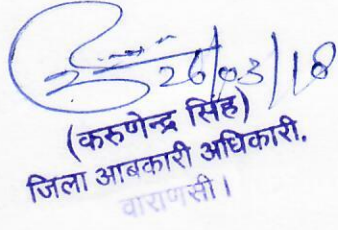 26/03/18
(करुणेन्द्र सिंह)
जिला आबकारी अधिकारी.
वाराणसी।